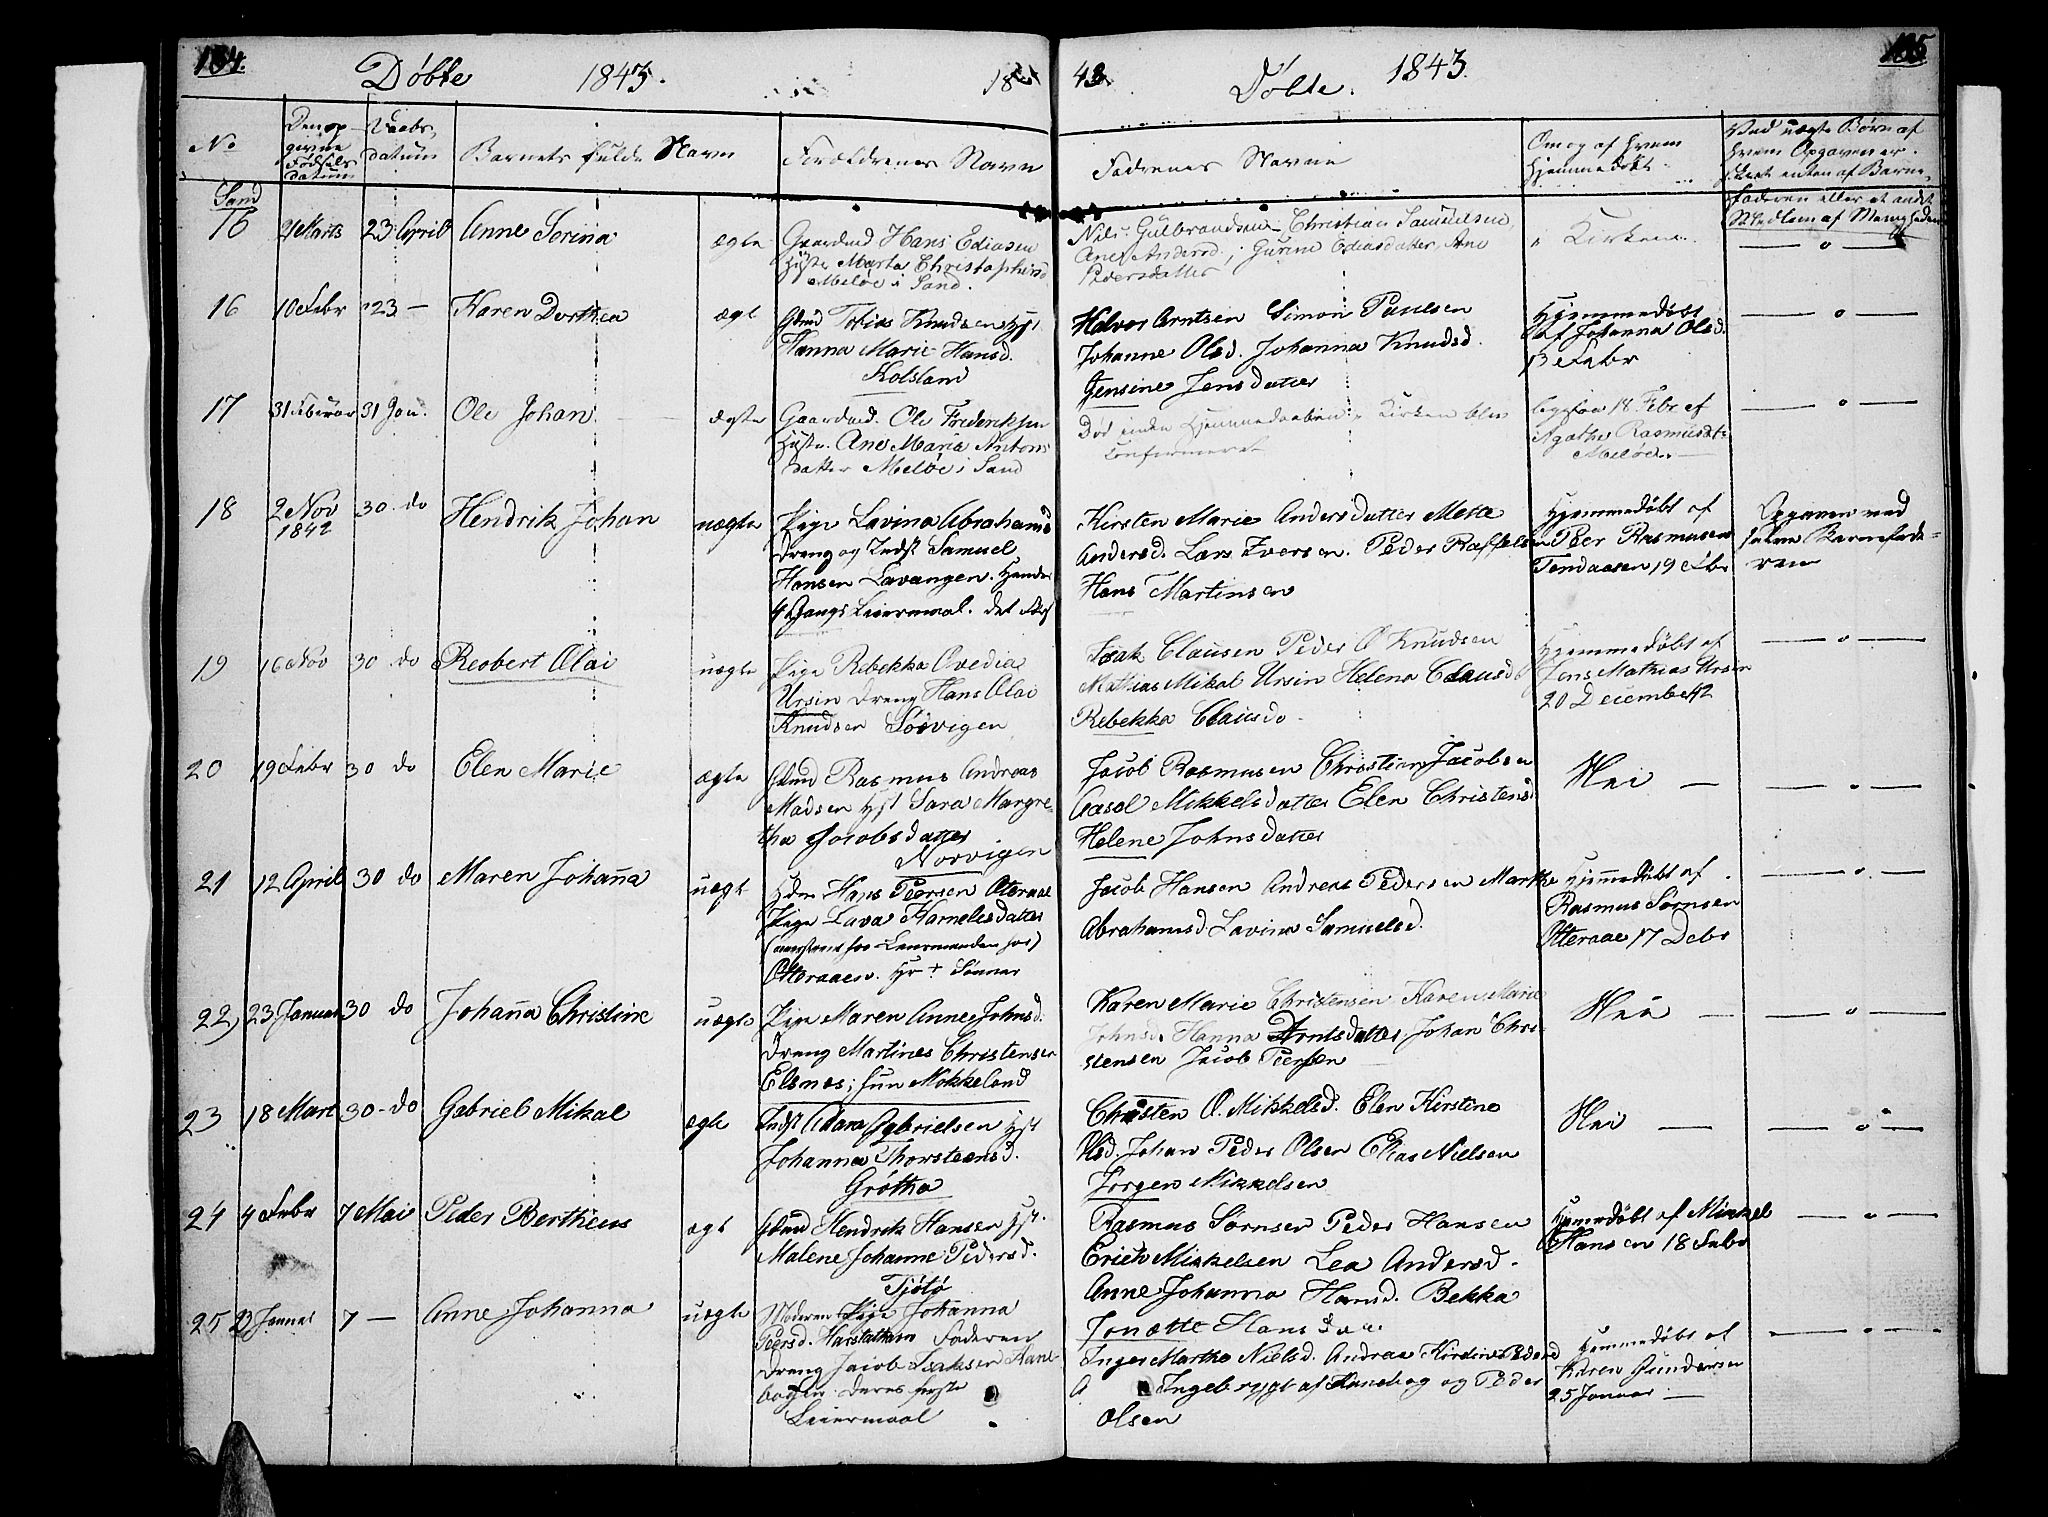 134.
Døbte 1843.
18
43.
Døbte. 1843.
135
No
Den op-
givne
Fødsels
datum
Daabs-
datum
Barnets fulde Navn
Forældrenes Navn
Faderenes Navne
Om og af Hvem
Hjemmedøbt
Ved uægte Børn af
hvem Opgaven er
skeet enten af Barne-
faderen eller et andet
Medlem af Menigheden
Sand
16 Marts 23 April Anne Sorina ægte Gaardmd Hans Ediasen
Hustr Marta Christophersd
Meløe i Sand.
Nils Gulbrandsen Christian Samuelsen
Ane Andersd, Gurine Ediasdatter, Ane
Pedersdatter
i Kirken
— o —
16 10 Febr 23 — Karen Dorthea ægt Gbmd Tobias Knudsen Hst
Hanna Marie Hansd.
Kolsland
Halvor Arntsen Simon Paulsen
Johanne Olsd. Johanna Knudsd.
Gensine Jensdatter
Hjemmedøbt
af Johanna Olsd.
13 Febr
— o —
17 31 Januar 31 Jan. Ole Johan ægte Gaardmd. Ole Frederiksen
Hustr. Ane Maria Antons
datter Meløe i Sand
Død inden Hjemmedaaben i Kirken blev
confirmeret
18 Febr af
Agathe Rasmusdt.
Meløe.
— o —
18 2 Nov
1842 30 do Hendrik Johan uægte Pige Lavina Abrahamsd
Dreng og Indst Samuel
Hansen Lavangen. Hendes
4 Gangs Leiermaal. det første
Kirsten Marie Andersdatter Mette
Andersd. Lars Iversen. Peder Raffelsen
Hans Martinsen
Hjemmedøbt af
Peer Rasmusen
Tondaasen 19 Febr
Opgaven ved
selve Barnefade-
ren
19 16 Nov 30 do Reobert Olai uægte Pige Rebekka Ovedia
Ursin Dreng Hans Olai
Knudsen Sørvigen
Isak Clausen Peder O Knudsen
Mathias Mikal Ursin Helena Clausd
Rebekka Clausd.
Hjemmedøbt af
Jens Mathias Ursin
20 December 42
— o —
20 19 Febr 30 do Elen Marie ægte Gbmd Rasmus Andreas
Madsen Hst Sara Margre-
tha Jacobsdatter
Norvigen
Jacob Rasmusen Christian Jacobsen
Gasol Mikkelsdatter Elen Christensd
Helene Johnsdatter
Nei —
— o —
21 12 April 30 do Maren Johanna uægt Hans Peersen Otteraae
Pige Lava Kornelisdatter
Otteraaen.
Jacob Hansen Andreas Pedersen Marthe
Abrahamsd Lavina Samuelsd.
Hjemmedøbt af
Rasmus Sørnsen
Otteraae 17 Debr
— o —
22) 23 Januar 30 do Johanna Christine uægte Pige Maren Anne Johnsd.
Dreng Martines Christensen
Elsnes; hun Mokkeland
Karen Marie Christensen Karen Marie
Johnsd Hanna Arntsdatter Johan Chri-
stensen Jacob Peersen
Nei —
— o —
23 18 Mart 30 - do Gabriel Mikal ægte Indst Adam Gabrielsen Hst
Johanna Thorsteensd.
Grøtho
Christen O. Mikkelsd. Elen Kirstine
Olsd. Johan Peder Olsen Elias Nielsen
Jørgen Mikkelsen
Nei —
— o —
24 4 Febr 7 Mai Peder Bertheus ægt Gbmd Hendrik Hansen Hst.
Malene Johanne Pedersd.
Tjøtø
Rasmus Sørnsen Peder Hansen
Erich Mikkelsen Lea Andersd.
Anne Johanna Hansd. Bekka
Jonætte Hansdat
Hjemmedøbt af Mikkel
Hansen 18 Febr
— o —
25 23 Januar 7 — Anne Johanna uægte Moderen Pige Johanna
Peersd. Harstathavn Faderen
Dreng Jacob Isaksen Kane-
bogen Deres første
Leiermaal
Inger Martha Nielsd. Andrea Kirstine Pedersd
Ingebrygt af Kanebog og Peder
Olsen
Hjemmedøbt af
Karen Gundersen
25 Januar —
— o —